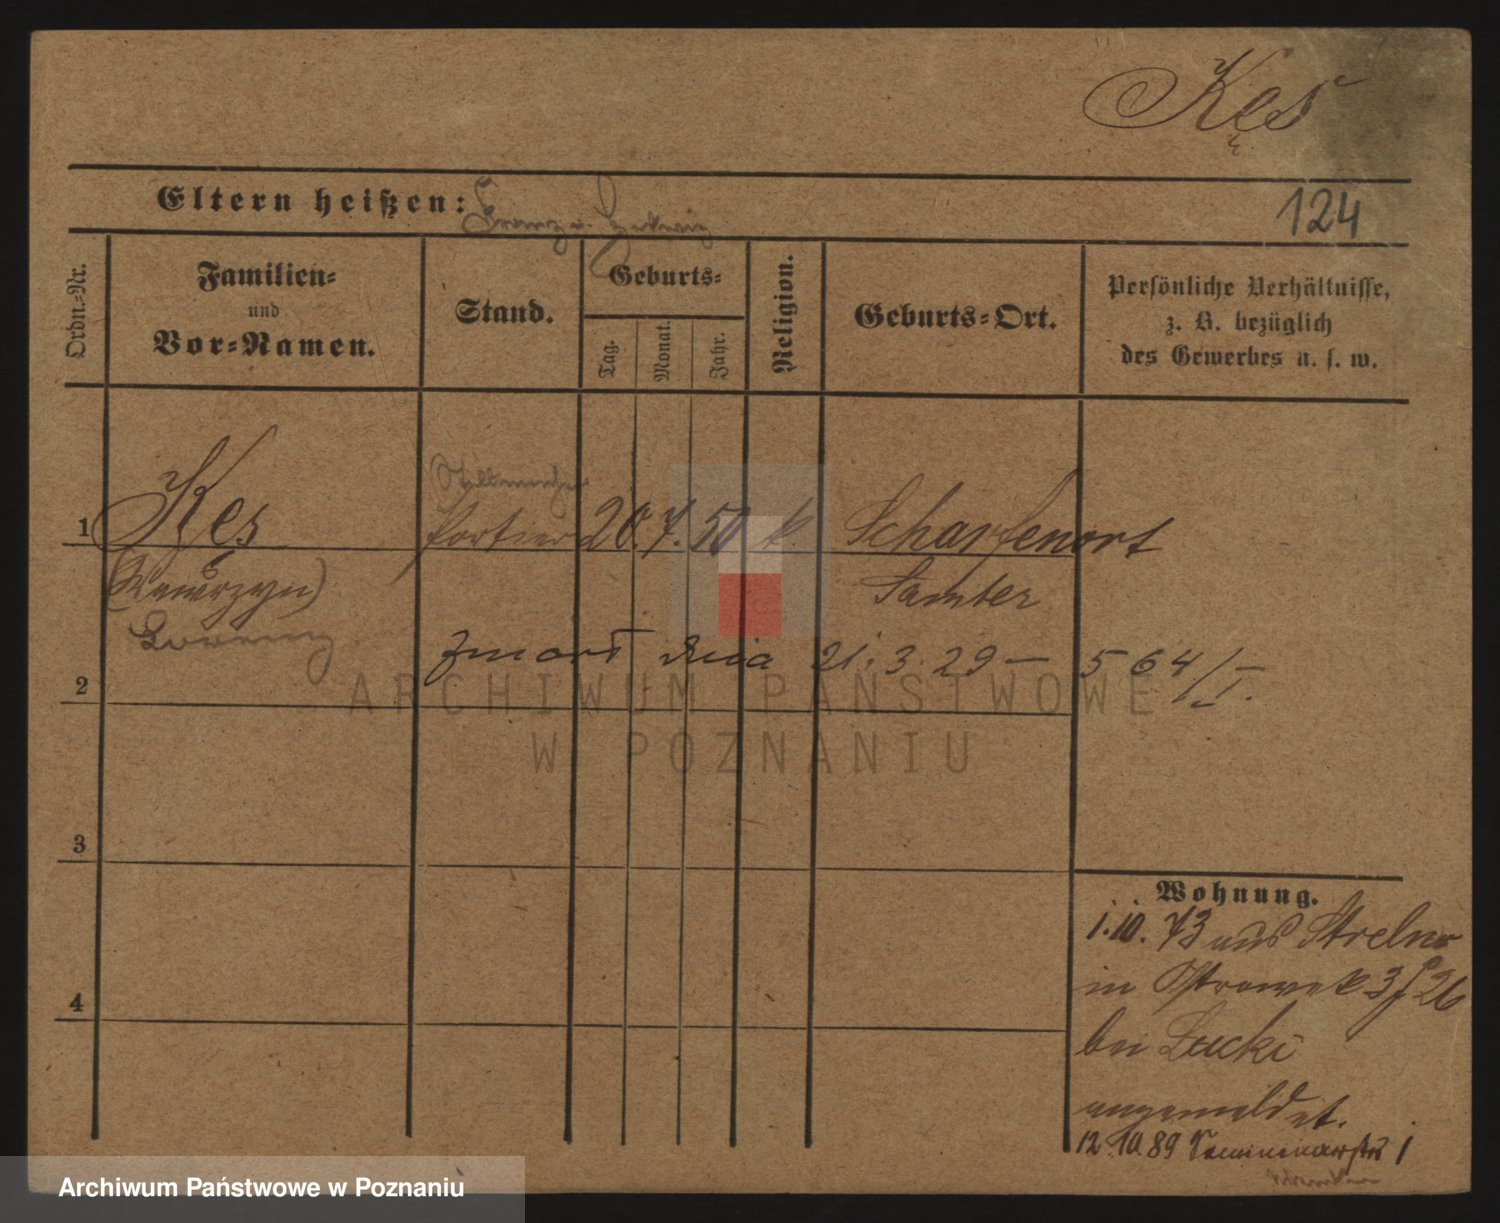 Kęs
Eltern heißen: Franz u. Hedwig
124
Ordn.-Nr.
Familien-
und
Vor-Namen.
Stand.
Geburts-
Tag.
Monat.
Jahr.
Religion.
Geburts-Ort.
Persönliche Verhältnisse,
z. B. bezüglich
des Gewerbes u. s. w.
1
Kes
(Wawrzyn)
Lorenz
Portier
20. 7. 50
k.
Scharfenort
Samter
zmarł dnia 21. 3. 29 — 564/I.
2
3
4
Wohnung.
1.10. 73 aus Strelno
in Ostrowek 3/26
bei Lucki
angemeldet.
12.10.89 Seminarstr 1
ARCHIWUM PAŃSTWOWE
W POZNANIU
Archiwum Państwowe w Poznaniu